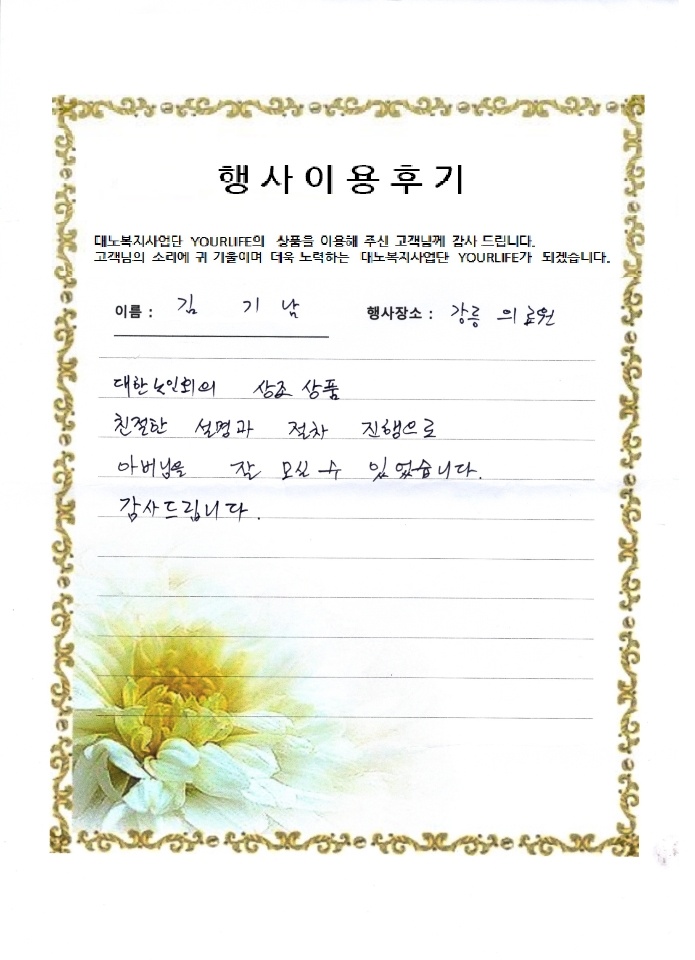 행사이용후기
대노복지사업단 YOURLIFE의 상품을 이용해 주신 고객님께 감사 드립니다.
고객님의 소리에 귀 기울이며 더욱 노력하는 대노복지사업단 YOURLIFE가 되겠습니다.
이름 : 김 기 남 행사장소 : 강릉 의료원
대한노인회의 상조 상품
친절한 설명과 절차 진행으로
아버님을 잘 모실 수 있었습니다.
감사드립니다.